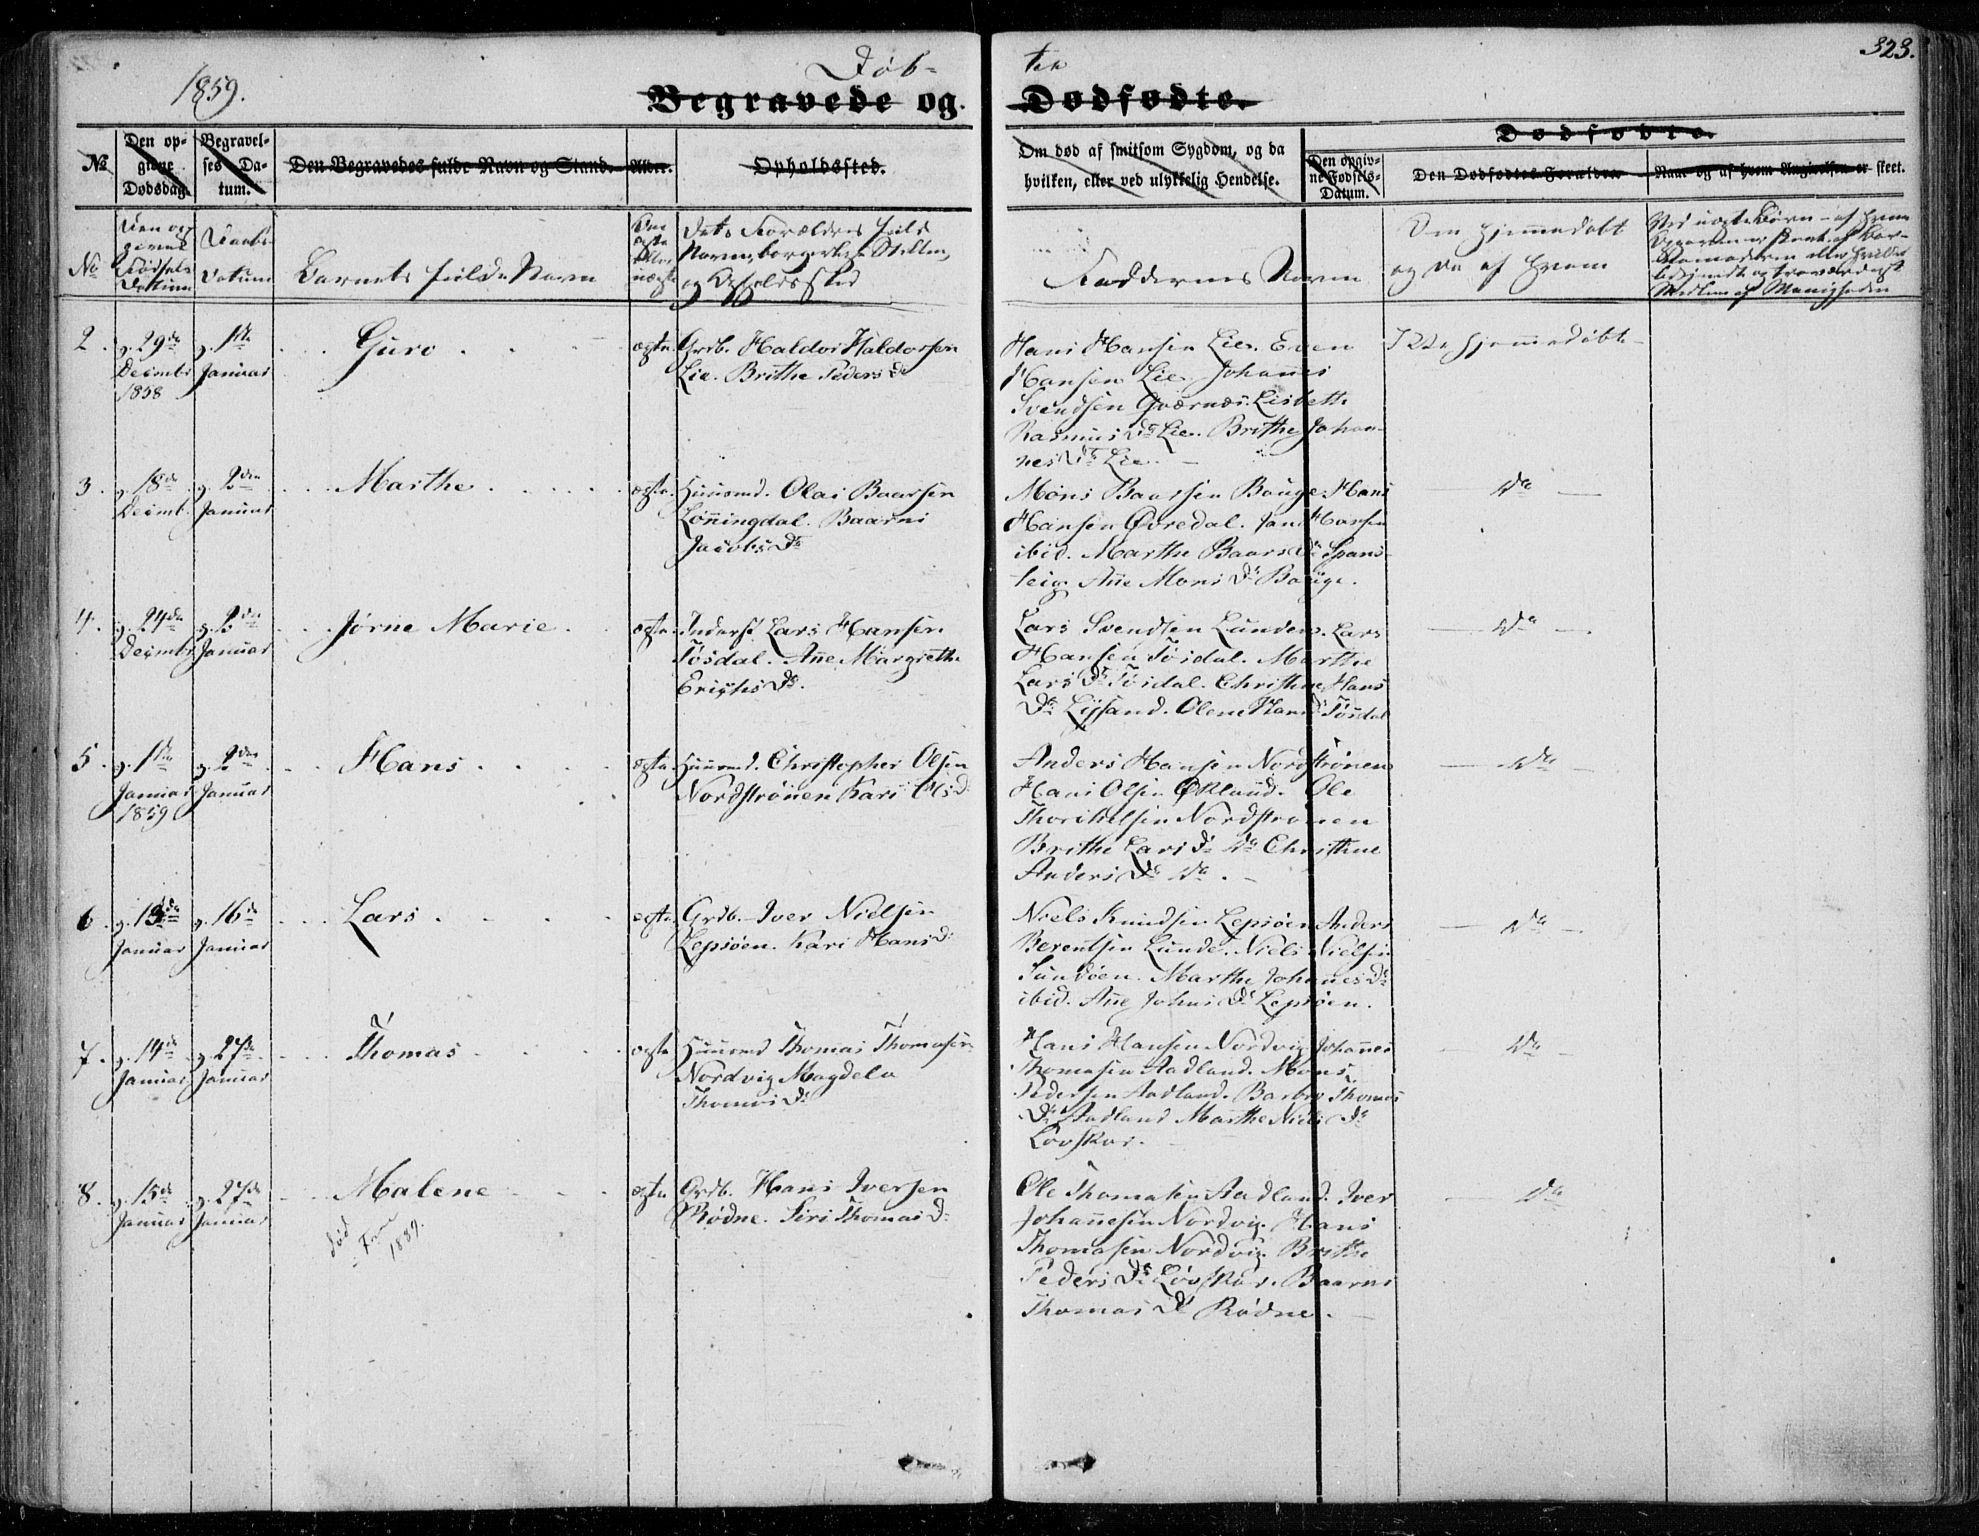 1859.
Døb-
ten
323.
Begravede og
Dødfødte.
No
Den op-
givne
Dødsdag.
Begravel-
ses Da-
tum.
Den Begravedes fulde Navn og Stand.
Alder.
Opholdssted.
Om død af smitsom Sygdom, og da
hvilken, eller ved ulykkelig Hendelse.
Den opgiv-
ne Fødsels-
Datum.
Dødfødte.
Den Dødfødtes Forældre
Naar og af hvem Angivelsen er skeet.
No
Den op
givne
Fødsels
Datum
Daabs-
Datum
Barnets fulde Navn
Om
ægte
eller
uægte
Dets Forældres fulde
Navn, borgerlige Stilling
og Opholdssted
Faddernes Navn
Om hjemmedøbt
og da af hvem
Ved uægte Børn - af hvem
2. g. 29de
Decembr
1858
g. 1ste
Januar
Guro
ægte
Grdb. Haldor Haldorsen
Lie. Brithe Peders Dr
Hans Hansen Lie. Even
Hansen Lie. Johannes
Svendsen Gværnæs. Lisbeth
Rasmus Dr Lie. Brithe Johan-
nes Dr Lie.
Ikke hjemmedøbt
3. g. 18de
Decemb.
g. 2den
Januar
Marthe
ægte
Huusmd. Olai Baarsen
Lønningdal. Baarni
Jacobs Dr
Møns Baarsen Bauge. Hans
Hansen Øvredal. Jan Hansen
ibid. Marthe Baars Dr Spans-
leig Ane Mons Dr Bauge.
Do
4. g. 24de
Decembr
g. 2den
Januar
Jørne Marie
ægte
Inderst Lars Hansen
Tøsdal. Ane Margrethe
Erichs Dr.
Lars Svendsen Lunden. Lars
Hansen Tøsdal. Marthe
Lars Dr Tøsdal. Christine Hans
Dr Lysand. Olene Hans Dr Tøsdal
Do
5. g. 1ste
Januar
1859
g. 2den
Januar
Hans
ægte
Huusmd. Christopher Olsen
Nordstrønen Kari Ols Dr
Anders Hansen Nordstrønen
Hans Olsen Økland. Ole
Thorkelsen Nordstrønen
Brithe Lars Dr Do Christine
Anders Dr Do.
Do
6. g. 13de
Januar
g. 16de
Januar
Lars
ægte
Grdb. Iver Nielsen
Lepsøen. Kari Hans Dr
Niels Knudsen Lepsøen Anders
Berentsen Lunde. Niels Nielsen
Sundøen. Marthe Johannes Dr
ibid. Ane Johns Dr Lepsøen.
Do
7. g. 14de
Januar
g. 27de
Januar
Thomas
ægte
Huusmd Thomas Thomasen
Nordvig Magdela
Thomas Dr
Hans Hansen Nordvig Johannes
Thomasen Aadland. Mons
Pedersen Aadland. Barbro Thomas
Dr Aadland Marthe Niels Dr
Løvskar.
Do
8. g. 15de
Januar
g. 27de
Januar
Malene
død
1889.
ægte
Grdb. Hans Iversen
Rødne. Siri Thomas Dr
Ole Thomasen Aadland. Iver
Johannesen Nordvig. Hans
Thomasen Nordvig. Brithe
Peders Dr Løvskar. Baarni
Thomas Dr Rødne.
Do